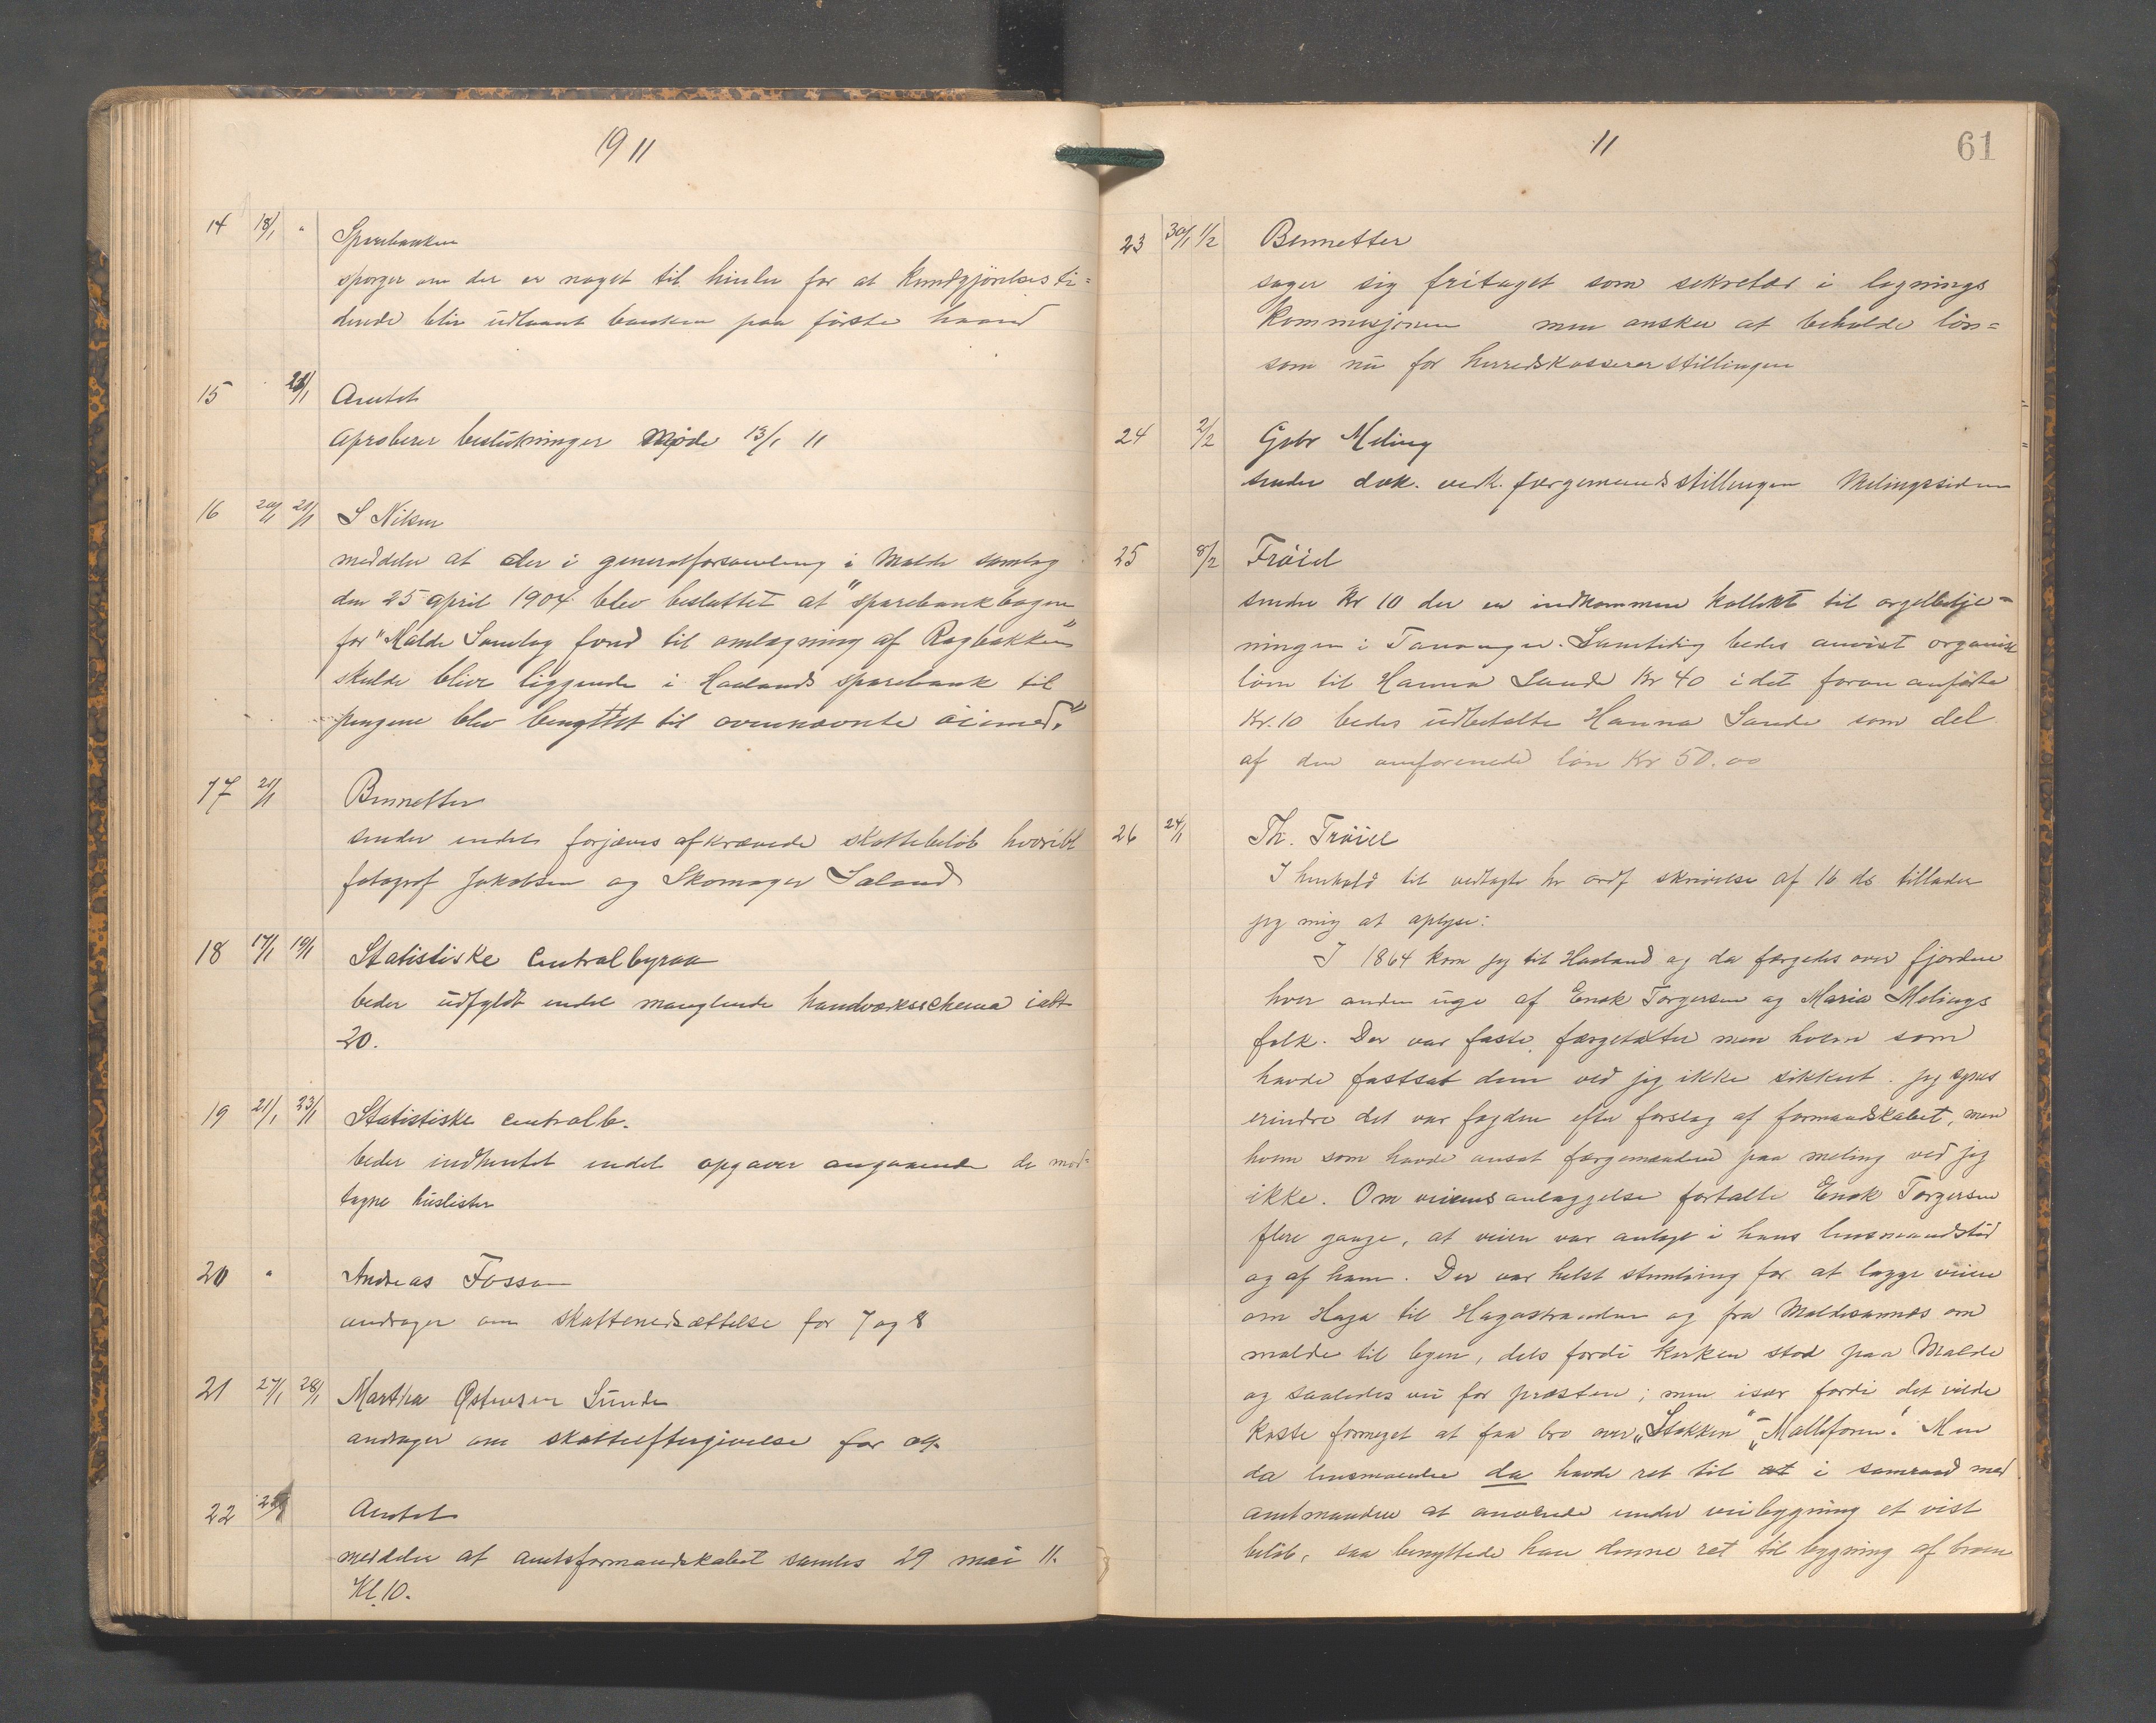 19 11
14 18/1 "
Sparebanken
spørger om der er noget til hinder for at Kundgjørelsesti=
dende blir udlaant banken paa første haand
15 21/1 Amtet
Aproberer beslutninger Møde 13/1 11
16 20/1 21/1 S Nilsen
meddeler at der i generalforsamling i Malde samlag
den 25 april 1904 blev besluttet at "sparebankbogen
for "Malde Samlag fond til omlægning af Ragbakken"
skulde blive liggende i Haalands sparebank til
pengene blev benyttet til ovennævnte øiemed."
17 21/1 Bennetter
sender endel forjæves afkrævede skattebeløb hvoriblt
fotograf Jakobsen og Skomager Søland
18 17/1 19/1 Statistiske Centralbyraa
beder udfyldt endel manglende handværksschema ialt
20.
19 21/1 23/1 Statistiske centralb.
beder indhentet endel opgaver angaaende de mod=
tagne huslister
20 " Andreas Fosse
andrager om skattenedsættelse for 7 og 8
21 27/1 28/1 Martha Østensen Sunde
andrager om skatteeftergivelse for
22 Amtet
meddeler at amtsformandskabet samles 29 mai 11.
Kl. 10.
11 61
23 30/1 1/2 Bennetter
søger sig fritaget som sekretær i lignings
Kommisjonen men ønsker at beholde løn=
som nu for herredskassererstillingen
24 2/2 Gabr Meling
sender dok. vedk. færgemandsstillingen Melingssiden
25 8/2 Frøiel
sender Kr 10 der er indkommen kollekt til orgelbetje=
ningen i Tananger. Samtidig bedes anvist organist
løn til Hanna Sande Kr 40 idet foran anførte
Kr. 10 bedes udbetalte Hanna Sande som del
af den omforenede løn Kr 50.00
26 24/1 Th. Frøiel
I henhold til vedlagte hr ordf skrivelse af 16 ds tillader
jeg mig at oplyse:
I 1864 kom jeg til Haaland og da færgedes over fjorden
hver anden uge af Enok Torgersen og Maria Melings
folk. Der var faste færgetakter men hvem som
havde fastsat dem ved jeg ikke sikkert. Jeg synes
erindre det var fogden efter forslag af formandskabet, men
hvem som havde ansat færgemændene paa meling ved jeg
ikke. Om veiens anlæggelse fortalte Enok Torgersen
flere gange, at veien var anlagt i hans lensmandstid
og af ham. Der var helst stemning for at lægge veien
om Haga til Hagastranden og fra Maldesannes om
malde til byen, dels fordi kirken stod paa Malde
og saaledes vei for præsten; men især fordi det vilde
koste formeget at faa bro over „Stokken" – „Malleforen". Men
da lensmanden da havde ret til at i samraad med
amtmanden at anvende under veibygning et vist
beløb, saa benyttede han denne ret til bygning af broen